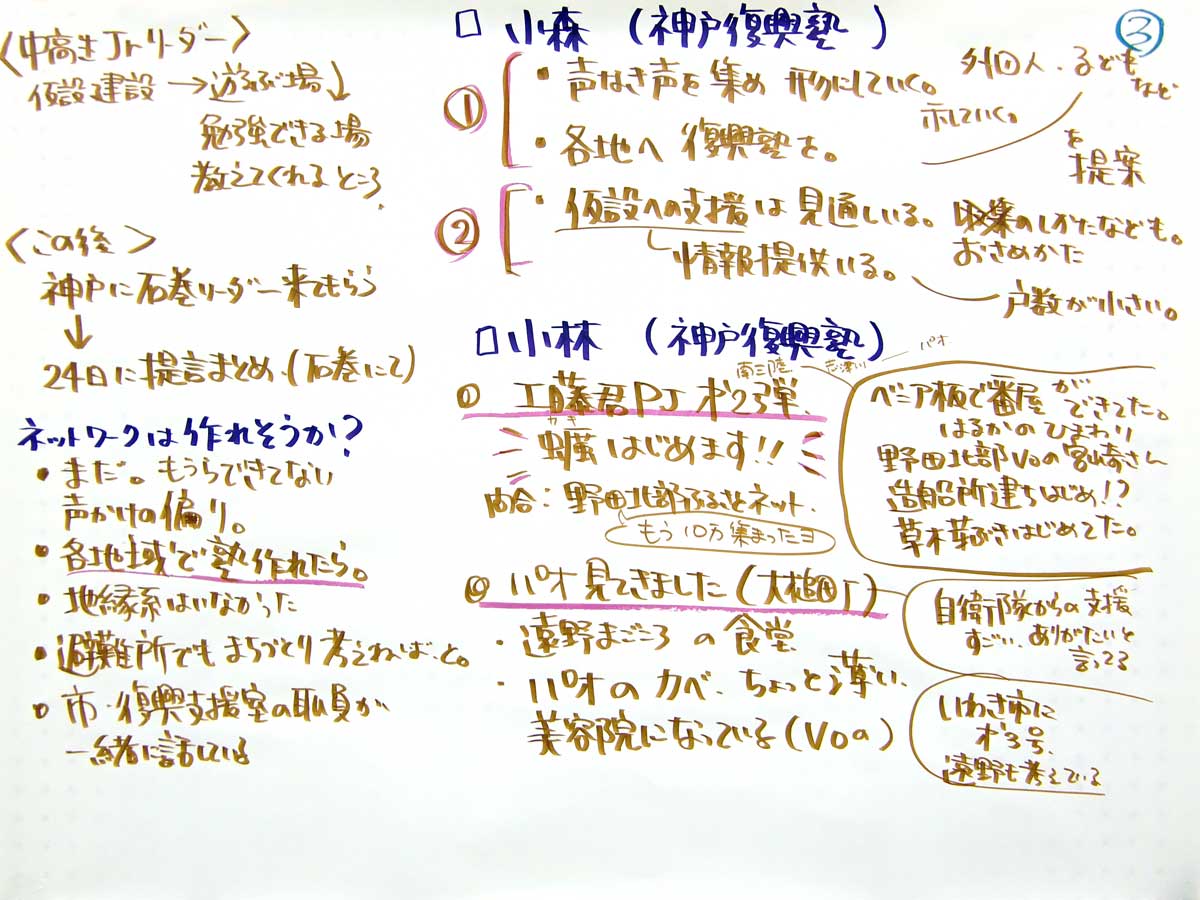 ③
〈中高生Jrリーダー〉
仮設建設→遊ぶ場↓
勉強できる場
教えてくれるところ.
〈この後〉
神戸に石巻リーダー来てもらう
↓
24日に提言まとめ.(石巻にて)
ネットワークは作れそうか?
・まだ。もうらできてない
声かけの偏り。
・各地域で塾作れたら。
・地縁系はいなかった
・避難所でもまちづくり考えねば、と。
・市・復興支援室の職員が
一緒に話している
□ 小森 (神戸復興塾)
① ・声なき声を集め 形にしていく。
示していく。
外国人、子ども
など
を
提案
・各地へ 復興塾を。
② ・仮設への支援は見通しいる。
収集のしかたなども。
おさめかた
情報提供いる。
戸数が小さい。
□ 小林 (神戸復興塾)
① 工藤君PJ 才2弾.
カキ
蠣はじめます!!
南三陸
志津川
パオ
問合:野田北部ふるさとネット.
もう10万集まったヨ
ベニア板で番屋ができてた。
はるかのひまわり
野田北部Voの宮崎さん
造船所建ちはじめ!?
草木芽ぶきはじめてた。
パオ見てきました(大槌町)
・遠野まごころの食堂
・パオのカベ、ちょっと薄い.
美容院になっている(Voの)
自衛隊からの支援
すごい、ありがたいと
言ってる
いわき市に
才3号.
遠野も考えている